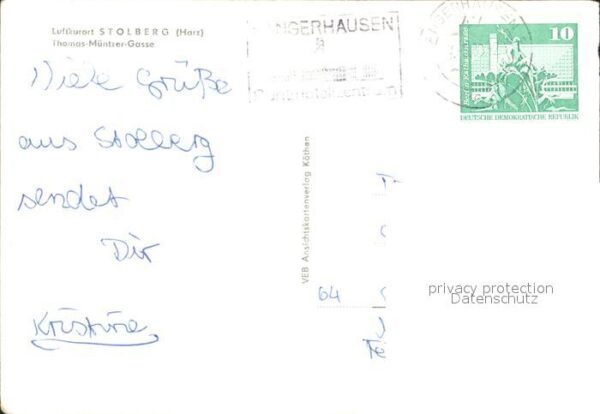 Luftkurort STOLBERG (Harz)
Thomas-Müntzer-Gasse
Viele Grüße
aus Stolberg
sendet
Dir
Kristine
VEB Ansichtskartenverlag Köthen
SANGERHAUSEN
SANGERHAUSEN
10
DEUTSCHE DEMOKRATISCHE REPUBLIK
64
privacy protection
Datenschutz